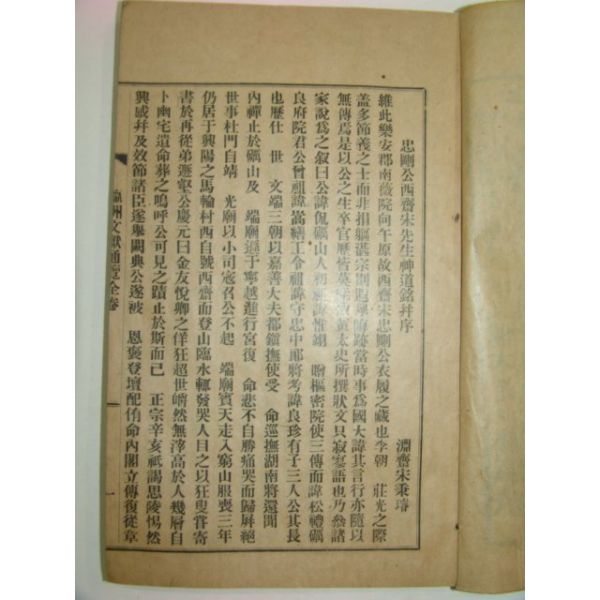 忠剛公西齋宋先生神道銘幷序
淵齋宋秉璿
維此樂安郡南薇院向午原故西齋宋忠剛公衣履之藏也李朝 莊光之際
盖多節義之士而非捐軀湛宗則遐舉晦跡當時事爲國大諱其言行亦隨以
無傳焉是以公之生卒官歷皆莫 黃太史所撰狀文只寂寥語也乃叅諸
家說爲之叙曰公諱侃礪山人初祖諱惟翊 贈樞密院使三傳而諱松禮礪
良府院君公曾祖諱嵩繕工令祖諱守忠中郎將考諱良珍有子三人公其長
也歷仕 世 文端三朝以嘉善大夫都鎭撫使受 命巡撫湖南將還聞
內禪止於礪山及 端廟遜于寧越進行宮復 命悲不自勝痛哭而歸屛絕
世事杜門自靖 光廟以小司寇召公不起 端廟賓天走入窮山服喪三年
仍居于興陽之馬輪村西自號西齋而登山臨水輒發哭人目之以狂叟嘗寄
書於再從弟遯壑公慶元曰金友悅卿之佯狂超世峭然無滓高於人幾層自
卜幽宅遺命葬之嗚呼公可見之蹟止於斯而已 正宗辛亥祇謁思陵惕然
興感幷及效節諸臣遂舉闕典公遂被 恩褒登壇配侑命內閣立傳復從章
州文獻通 全卷
一